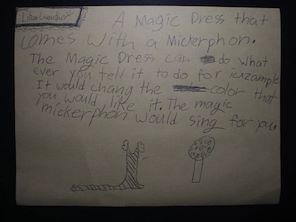 A Magic Dress that
comes with a Mickerphon.
The Magic Dress can do what
ever you tell it to do for icuzample
It would chang the color that
you would like it. The magic
mickerphon would sing for you.